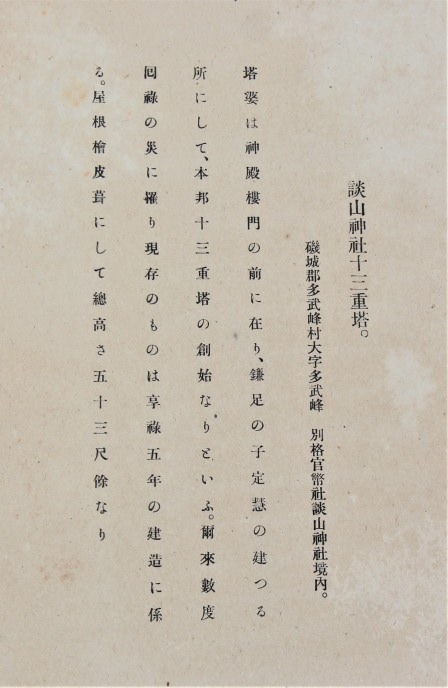 談山神社十三重塔。
磯城郡多武峰村大字多武峰　別格官幣社談山神社境內。
塔婆は神殿樓門の前に在り、鎌足の子定慧の建つる
所にして、本邦十三重塔の創始なりといふ。爾來數度
囘祿の災に罹り現存のものは享祿五年の建造に係
る。屋根檜皮葺にして總高さ五十三尺餘なり